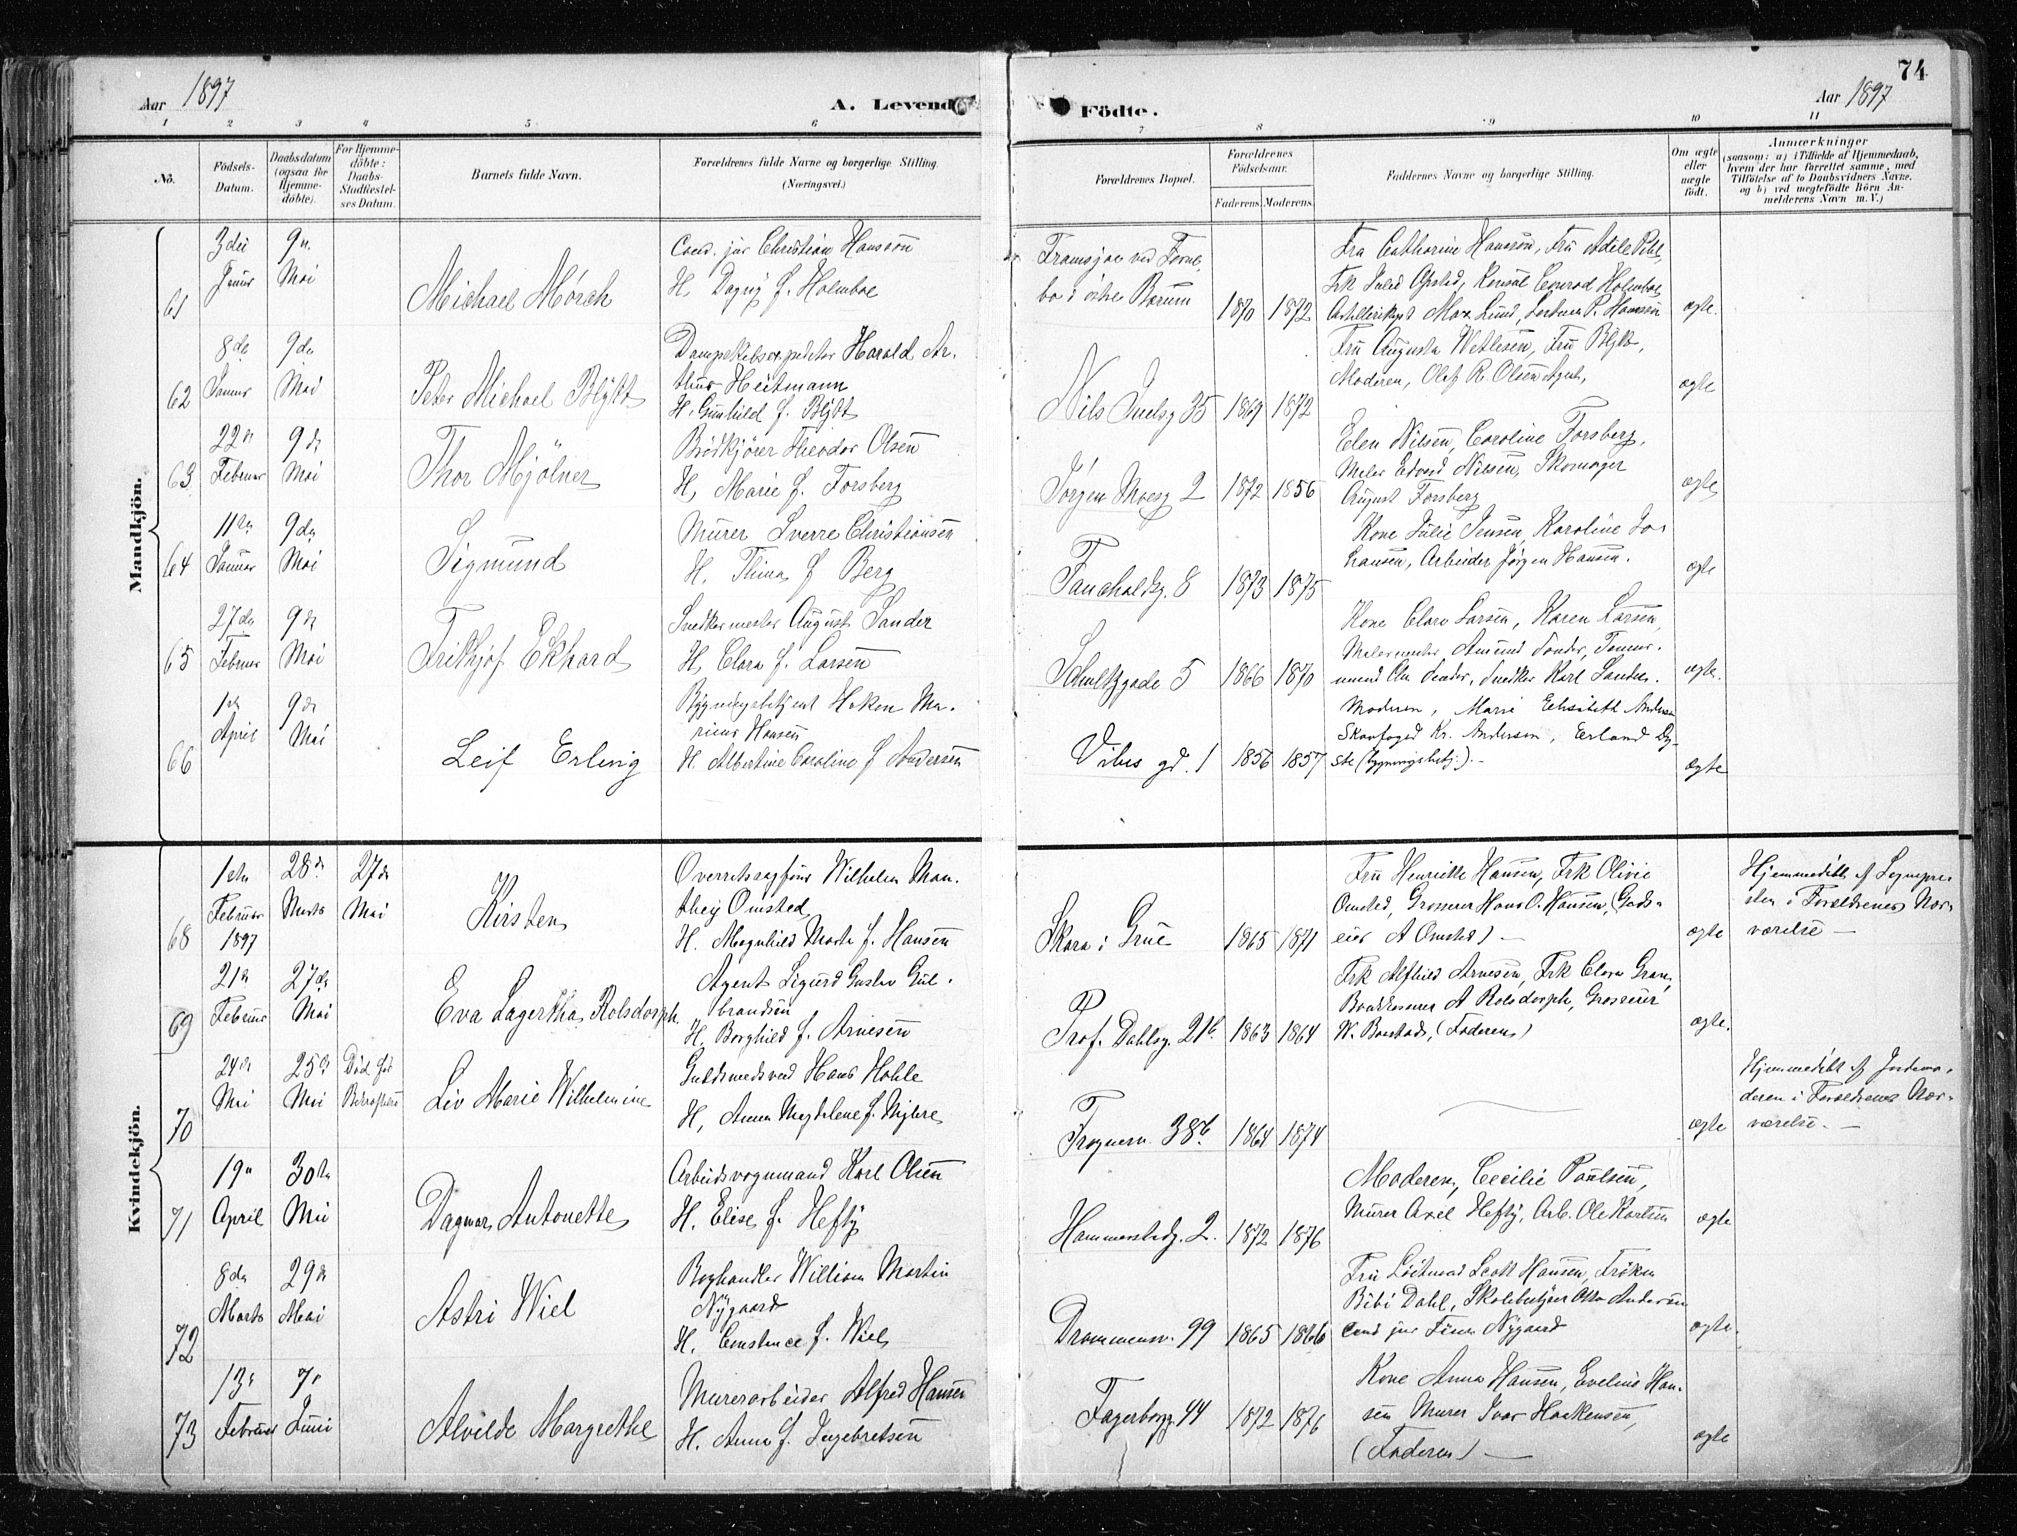 74
Aar 1897
A. Levende
Födte.
Aar 1897
1 2 3 4 5 6 7 8 9 10 11
No.
Födsels-
Datum.
Daabsdatum
(ogsaa for
Hjemme-
döbte).
For Hjemme-
döbte:
Daabs-
Stadfæstel-
ses Datum.
Barnets fulde Navn.
Forældrenes fulde Navne og borgerlige Stilling.
(Næringsvei.)
Forældrenes Bopæl.
Forældrenes
Födselsaar.
Faderens. Moderens.
Faddernes Navne og borgerlige Stilling.
Om ægte
eller
uægte
födt.
Anmærkninger
(saasom: a) i Tilfælde af Hjemmedaab,
hvem der har forrettet samme, med
Tilföielse af to Daabsvidners Navne,
og b) ved uægtefödte Börn An-
melderens Navn m. V.)
Mandkjön.
61
9
Mai
Michael Mörch
Cand. jur Christian Hansson
H. Dagny f. Holmboe
1870
1872
Fru Cathorine Hansson, Fru Adele
Max Lund, P. Hansson
ægte
62
8de
Januar
9de
Mai
Peter Michael Blÿtt
Harald Ar-
thur Heitmann
H. Gunhild f. Blÿtt
Nils Juelsg 35
1869
1872
Fru Augusta Wetlesen, Fru Blÿtt,
Moderen, Olaf R. Olsen Agent,
ægte
63
22de
Februar
9de
Mai
Thor Mjölner
Brödkjörer Theodor Olsen
H. Marie f. Forsberg
Jörgen Moesg 2
1872
1856
Elen Nilsen, Caroline Forsberg,
Maler Edvard Nilsen, Skomager
August Forsberg
ægte
64
11te
Januar
9de
Mai
Sigmund
Murer Sverre Christiansen
H. Thina f Berg
Fauchaldsg. 8
1873
1875
Kone Julie Jensen, Karoline Jo-
hansen, Arbeider Jörgen Hansen.
ægte
65
27de
Februar
9de
Mai
Frithjof Ekhard
Snedkermester August Sander
H. Clara f. Larsen
Schultzgade 5
1866
1870
Kone Clara Larsen, Karen Larsen,
Malermester Amund Sander, Tømmer-
mand Chr Sander, Snedker Karl Sander.
ægte
66
1ste
April
9de
Mai
Leif Erling
Bygningsbetjent Hakon Ma-
rius Hansen
H. Albertine Caroline f Andersen
Vibes gd. 1
1856
1857
Moderen, Marie Elisabeth Andersen
Skovfoged Kr. Andersen, Erland Dy-
ste (bygningsbetj.). -
Ægte
Kvindekjön.
68
1ste
Februar
1897
28de
Marts
27de
Mai
Kirsten
Overretssagförer Wilhelm Man-
they Omsted
H. Magnhild Marta f. Hansen
Skara i Grue
1865
1871
Fru Henriette Hansen, Frk Olivie
Omsted, Grosserer Hans O. Hansen, Gods-
eier A Omsted) -
ægte
Hjemmedöbt af Sognepre-
sten i Forældrenes Nær-
værelse -
69
21de
Februar
27de
Mai
Eva Lagertha Rolsdorph.
Agent Sigurd Gustav Gul-
brandsen
H. Borghild f. Arnesen
Prof. Dahlsg. 21b.
1863
1864
Frk Alfhild Arnesen, Frk Clara Gran,
A Rolsdorph, Grosserer
W. Borstad, (Faderen)
ægte.
70
24de
Mai
25de
Mai
Död för
Bekræftelsen
Liv Marie Wilhelmine
Guldsmedsvend Hans Hohle
H. Anna Magdalene f. Myhre
Frognerv. 38b.
1864
1874
ægte
Hjemmedöbt af Jordmo-
deren i Forældrenes Nær-
værelse. -
71
19de
April
30te
Mai
Dagmar Antonette
Arbeidsvognmand Karl Olsen
H. Elise f. Heftÿ
Hammerstadg. 2.
1872
1876
Moderen, Cecilie Paulsen,
Murer Axel Heftÿ, Arb. Ole Karlsen
ægte
72
8de
Marts
29de
Mai
Astri Wiel
Boghandler William Martin
Nygaard
H. Constance f. Wiel
Drammensv. 99
1865
1866
Fru Løitnant Scott Hansen, Fröken
Bibi Dahl, Skolebestyrer Otto Andersen
cand jur Finn Nygaard
ægte.
73
13de
Februar
7de
Juni
Alvilde Margrethe
Murerarbeider Alfred Hansen
H. Anna f. Ingebretsen
Fagerborgg. 44
1872
1876
Kone Anna Hansen, Eveline Han-
sen Murer Ivar Haakensen,
(Faderen) -
ægte